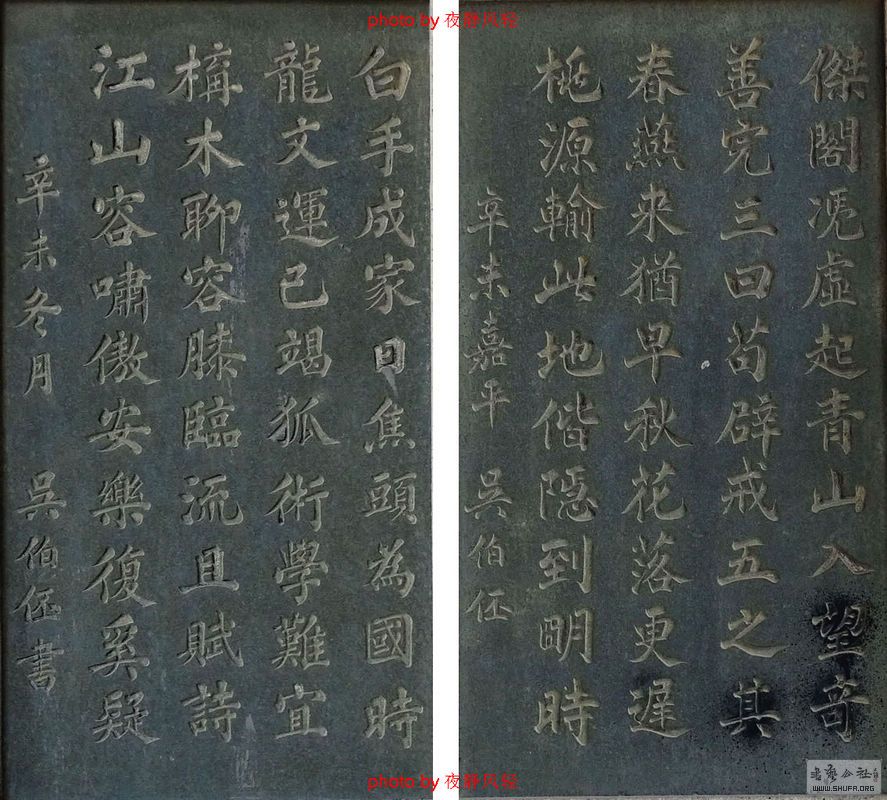 photo by 夜静风轻
傑閣凴虛起青山入望奇
善完三曰苟辟戒五之其
春燕来猶早秋花落更遲
桃源輸此地偕隱到明時
辛未嘉平 吳伯
白手成家日焦頭為國時
龍文運已竭狐術學難宜
構木聊容膝臨流且賦詩
江山容嘯傲安樂復奚疑
辛未冬月 吳伯書
photo by 夜静风轻
書藝公社
WWW.SHUFA.ORG